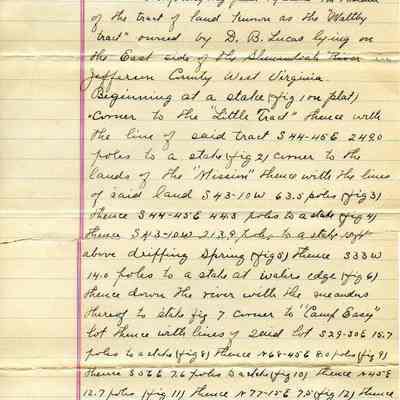 of the tract of land known as the "Waltby
tract" owned by D. B. Lucas lying on
the East side of the Shenandoah River in
Jefferson County West Virginia.
Beginning at a stake (fig 1 on plat)
Corner to the "Little Tract" thence with
the line of said tract S 44-45 E 249.0
poles to a stake (fig 2) corner to the
lands of the "Mission" thence with the lines
of said land S 43-10 W 63.5 poles (fig 3)
thence S 44-45 E 44.5 poles to a stake (fig 4)
thence S 43-10 W 213.9 poles to a stake
above dripping Spring (fig 5) thence S 33 W
14.0 poles to a stake at waters edge (fig 6)
thence down the river with the meanders
thereof to stake fig 7 corner to "Camp Easy"
lot thence with lines of said lot S 29-30 E 15.7
poles to a stake (fig 8) thence N 68-45 E 8.0 poles (fig 9)
thence S 05 E 7.6 poles to a stake (fig 10) thence N 45 E
12.7 poles (fig 11) thence N 77-15 E 7.5 (fig 12) thence